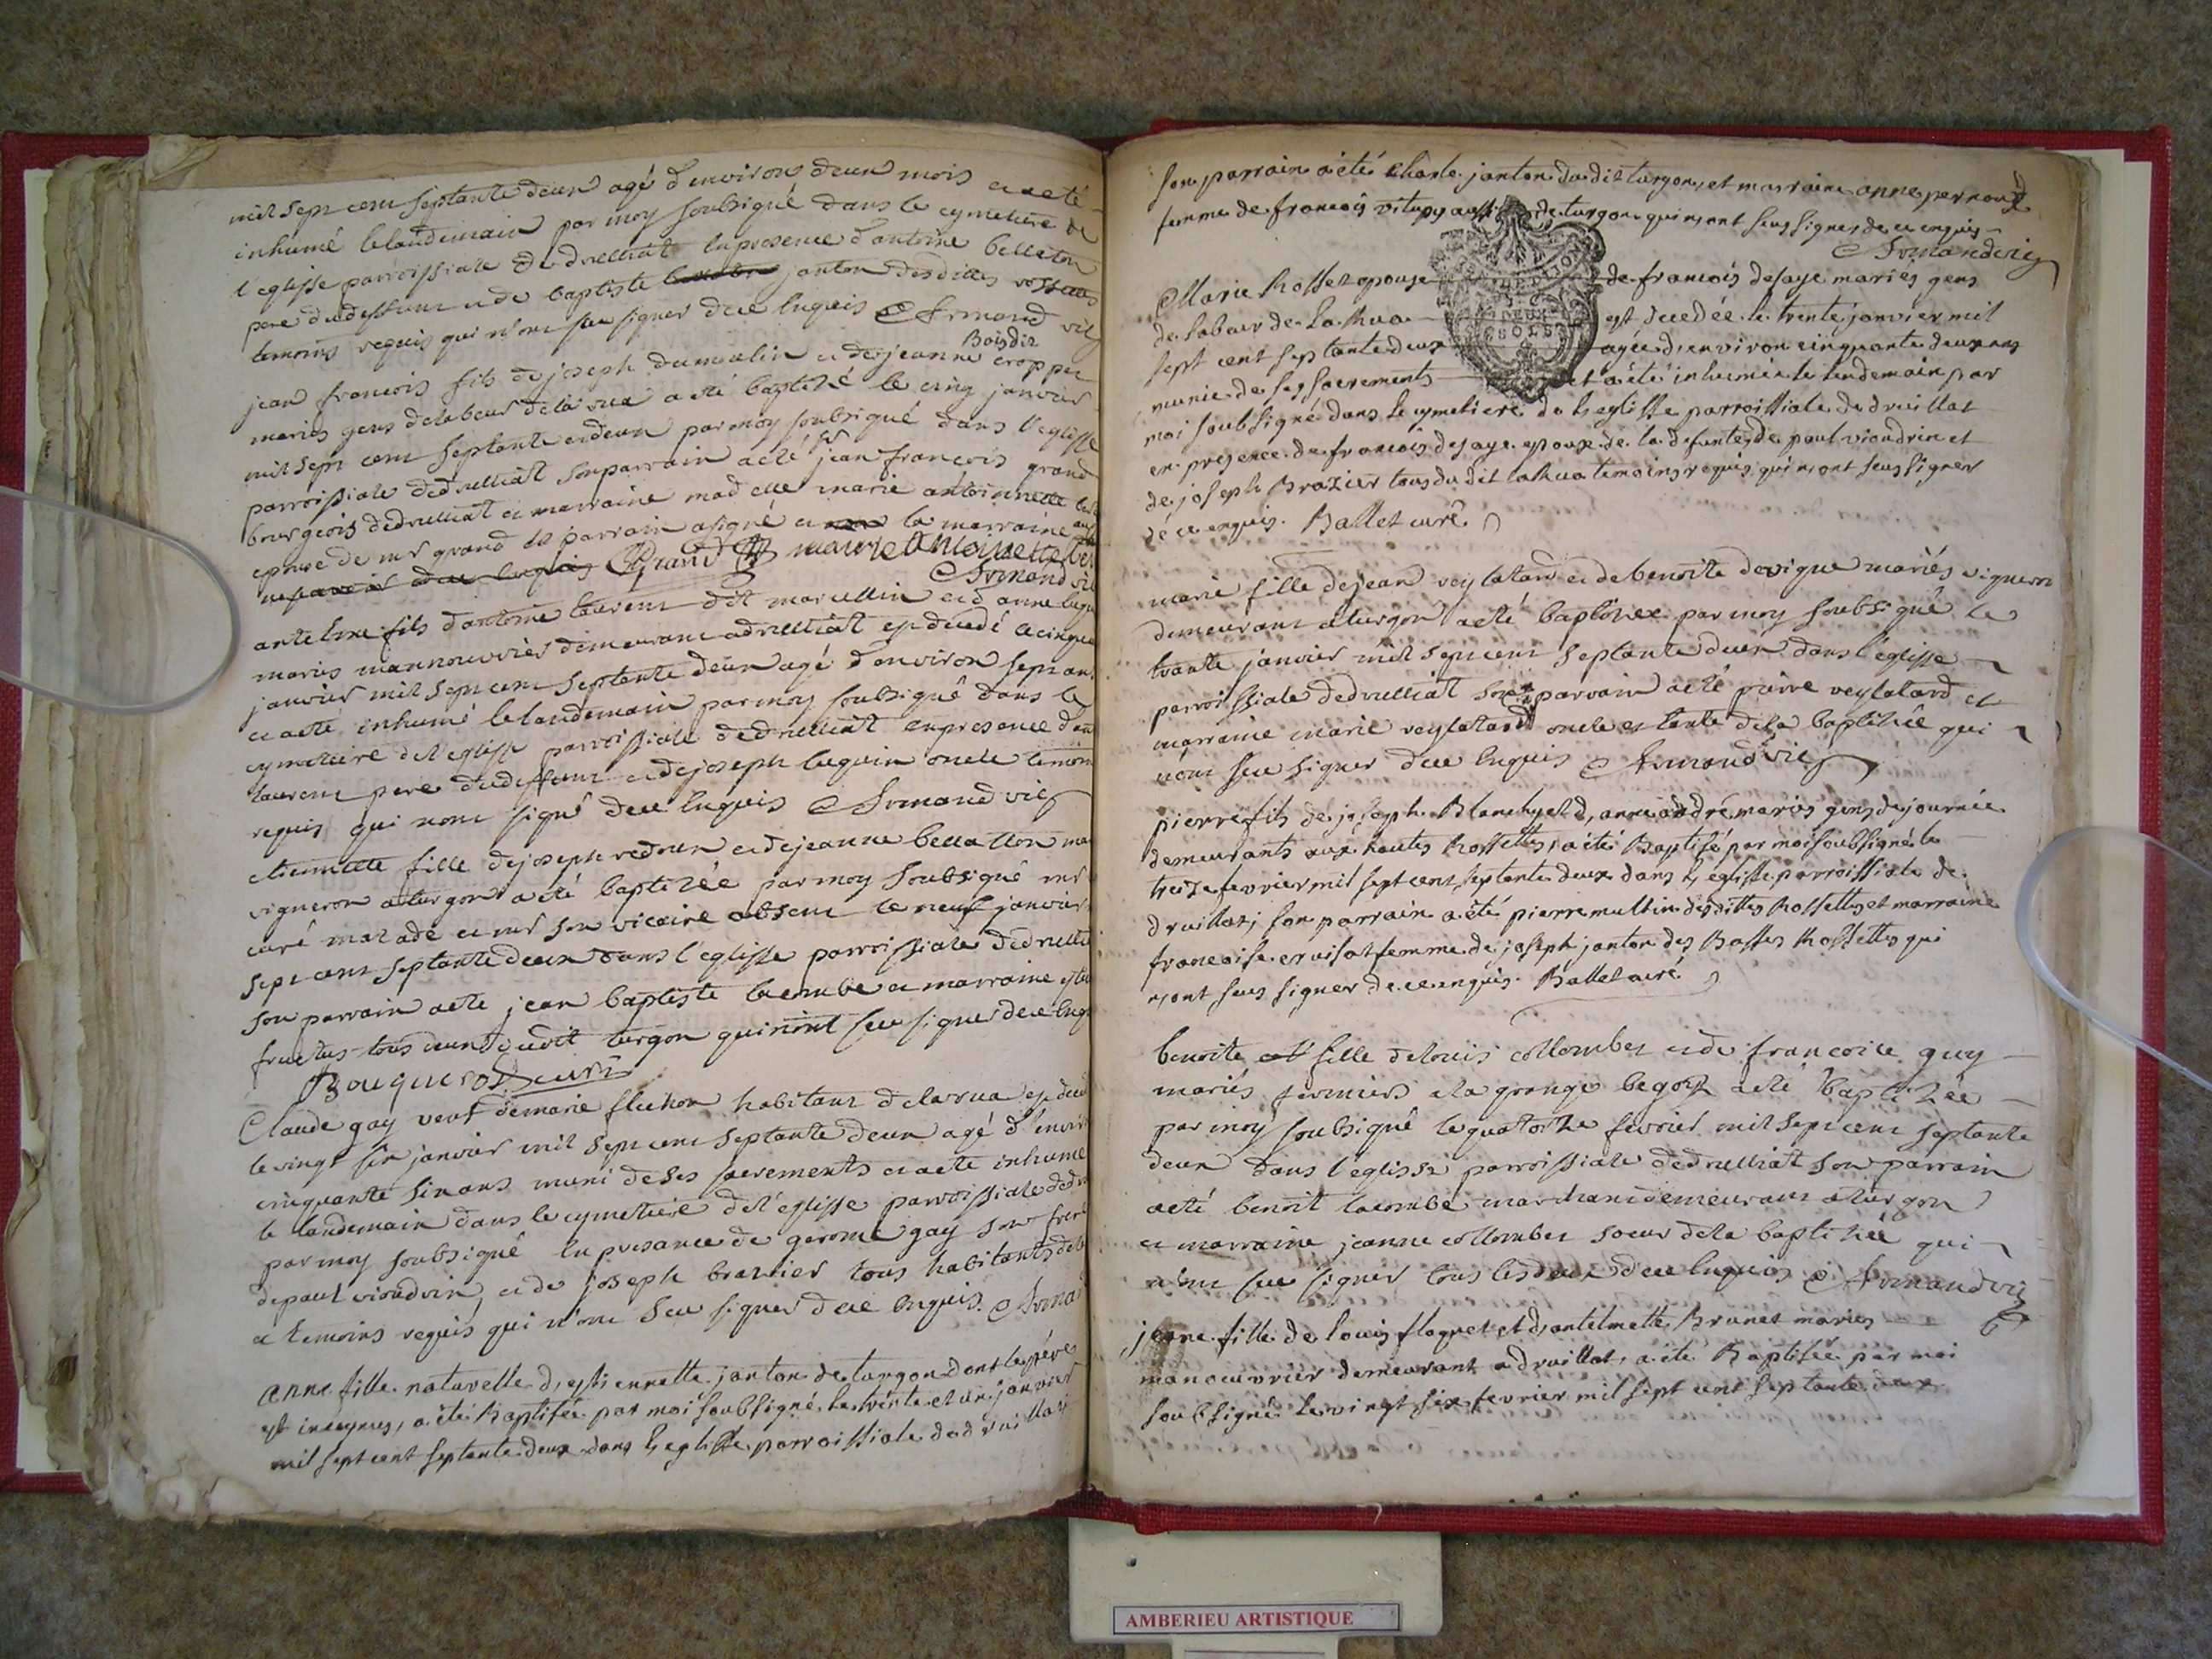 mil sept cent septante deux agé d'environ deux mois et a eté
inhumé le landemain par moy soubsigné dans le cymetiere de
l'eglisse parroissiale de drulliat en presence d'antoine belleton
pere du deffunt et de baptiste janton desdittes rossettes
temoins requis qui n'ont sceu signer de ce enquis Armand vic
Boisdir
jean francois fils de joseph dumoulin et de jeanne croppet
mariés gens de labeur de la rua a eté baptizé le cinq janvier
mil sept cent septante et deux par moy soubsigné dans l'eglisse
parroissiale de drulliat son parrain a eté sr jean francois grand
bourgeois de drulliat et marraine mad elle marie antoinette
epouse de mr grand le parrain a signé et la marraine
Grand marie Antoinette
Armand vic
antelme fils d'antoine laurent dit marcellin et d'anne
mariés mannouvrier demeurant a drulliat est decedé le cinque
janvier mil sept cent septante deux agé d'environ sept ans
et a eté inhumé le landemain par moy soubsigné dans le
cymetiere de l'eglisse parroissiale de drulliat en presence d'ant
laurent pere du deffunt et de joseph luguin oncle temoins
requis qui n'ont signé de ce enquis Armand vic
etiennette fille de joseph redoux et de jeanne bellatton ma
vigneron a turgon a eté baptizée par moy soubsigné mr
curé malade et mr son vicaire absent le neuf janvier
sept cent septante deux dans l'eglisse parroissiale de drullia
son parrain a eté jean baptiste lacombe et marraine
fructus tous deux dudit turgon qui n'ont sceu signer de ce enq
Bouquerod curé
Claude gay veuf de marie fluchon habitant de la rua est dece
le vingt six janvier mil sept cent septante deux agé d'envir
cinquante six ans muni de ses sacrements et a eté inhumé
le landemain dans le cymetiere de l'eglisse parroissiale de
par moy soubsigné en presance de gerome gay son frere
de paul vioudrin, et de joseph brazier tous habitants de la
et temoins requis qui n'ont sceu signer de ce enquis. Arma
anne fille naturelle d'estiennette janton de turgon dont le pére
est inconnus, a été Baptisée par moi soubsigné le trente et un janvier
mil sept cent septante deux dans l'eglisse parroissiale de druillat
son parrain a été Charle janton du dit turgon, et marraine anne pernoud
femme de francois vitupy aussi de turgon qui n'ont seus signer de ce enquis
Armand vic
Marie Rosset epouse de francois desaye mariés gens
de labeur de la Rua est decedée le trente janvier mil
sept cent septante deux agée d'environ cinquante deux ans
munie de ses sacrements et a été inhumée le lendemain par
moi soubsigné dans le cymetiere de l'eglisse parroissiale de druillat
en presence de francois desaye epoux de la defunte, de paul vioudrin et
de joseph Brazier tous du dit la Rua temoins requis qui n'ont seus signer
de ce enquis. Ballet curé
marie fille de jean veylatard et de benoite devigue mariés vigneron
demeurant a turgon a eté baptizée par moy soubsigné le
trante janvier mil sept cent septante deux dans l'eglisse
parroissiale de drulliat son parrain a eté pierre veylatard et
marraine marie veylatard oncle et tante de la baptizée qui
n'ont sceu signer de ce enquis Armand vic
pierre fils de joseph Blanchy et d'anne andré mariés gens de journée
demeurants aux hautes Rossettes, a été Baptisé par moi soubsigné le
treize fevrier mil sept cent septante deux dans l'eglisse parroissiale de
druillat; son parrain a été pierre multin desdittes Rossettes et marraine
francoise cruisat femme de joseph janton des Basses Rossettes qui
n'ont seus signer de ce enquis. Ballet curé
benoite fille de louis collombet et de francoise guy
mariés fermiers a la grange begoz a eté baptizée
par moy soubsigné le quatorze fevrier mil sept cent septante
deux dans l'eglisse parroissiale de drulliat son parrain
a eté benoit lacombe marchand demeurant a turgon
et marraine jeanne collombet soeur de la baptizée qui
n'ont sceu signer tous les deux de ce enquis Armand vic
jeane fille de louis floquet et d'antelmette Brunet mariés
manoeuvrier demeurant a druillat, a été Baptisée par moi
soubsigné le vingt six fevrier mil sept cent septante deux
DEUX
SOLS
AMBERIEU ARTISTIQUE